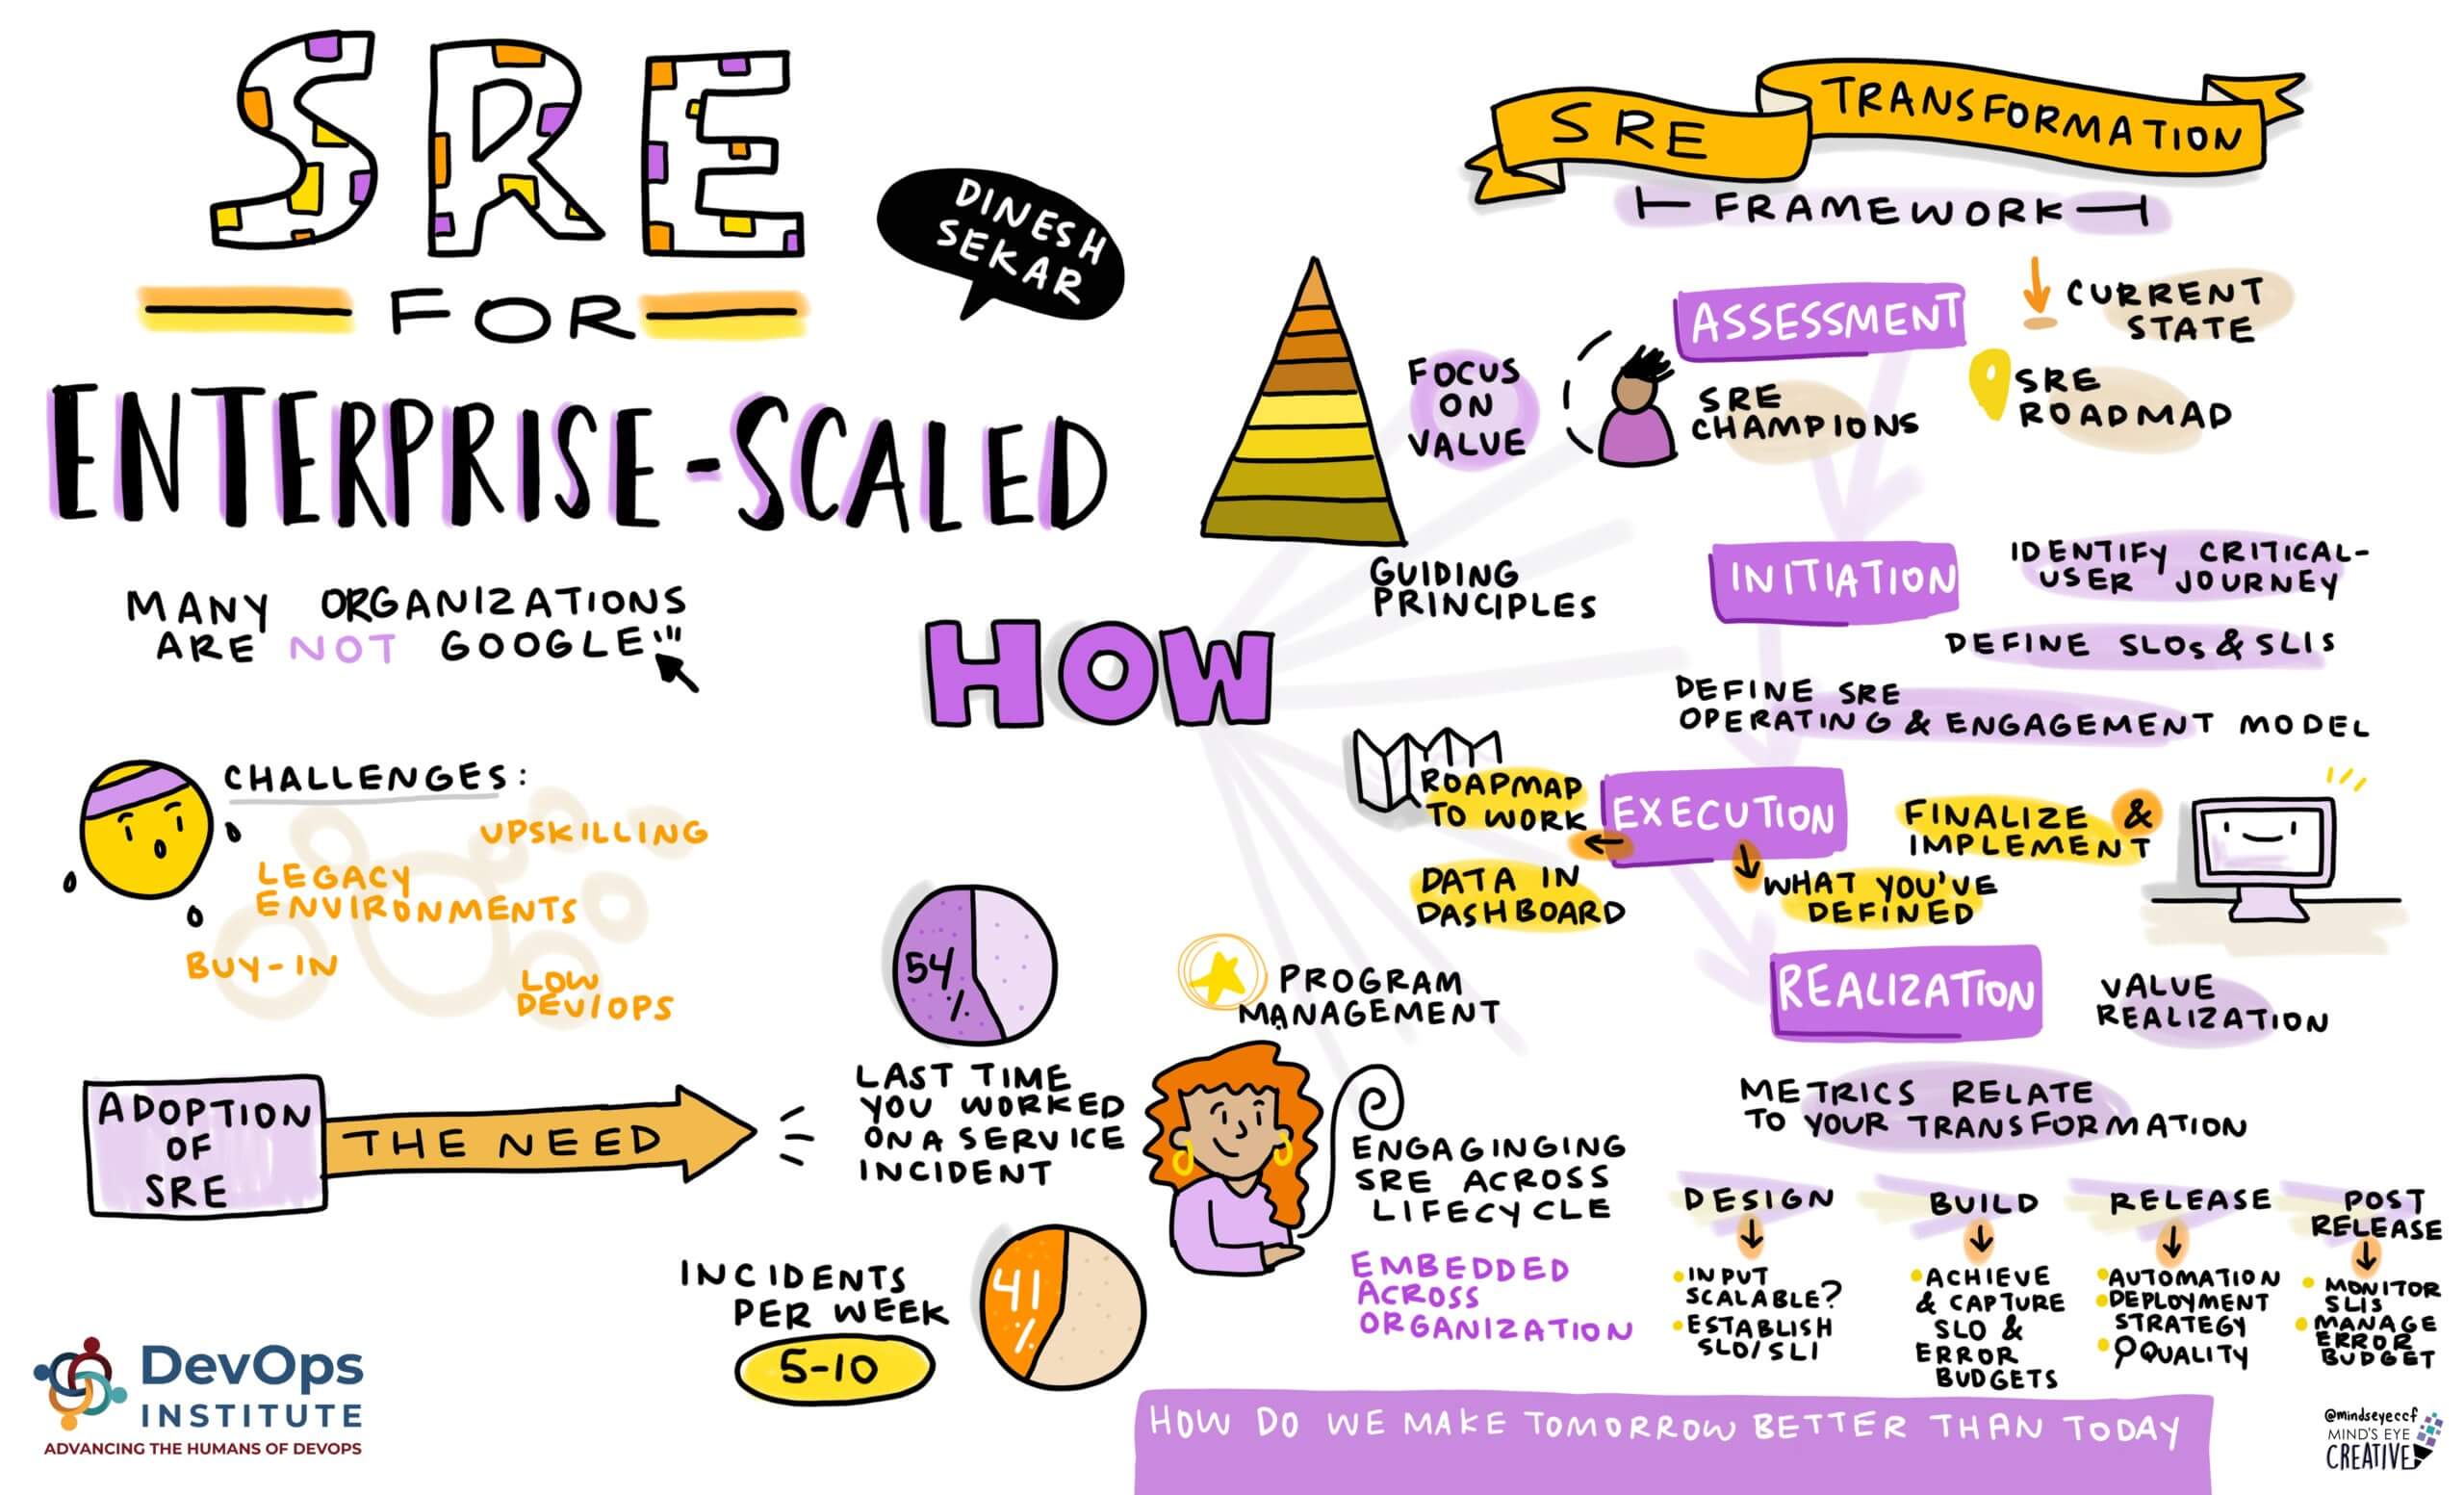 SRE
FOR
ENTERPRISE-SCALED
DINESH
SEKAR
MANY ORGANIZATIONS
ARE NOT GOOGLE
CHALLENGES:
UPSKILLING
LEGACY
ENVIRONMENTS
BUY-IN
LOW
DEV/OPS
ADOPTION
OF
SRE
THE NEED
54
%
LAST TIME
YOU WORKED
ON A SERVICE
INCIDENT
INCIDENTS
PER WEEK
5-10
41
%
HOW
FOCUS
ON
VALUE
GUIDING
PRINCIPLES
PROGRAM
MANAGEMENT
ENGAGINGING
SRE ACROSS
LIFECYCLE
EMBEDDED
ACROSS
ORGANIZATION
SRE TRANSFORMATION
FRAMEWORK
ASSESSMENT
CURRENT
STATE
SRE
CHAMPIONS
SRE
ROADMAP
INITIATION
IDENTIFY CRITICAL-
USER JOURNEY
DEFINE SLOs & SLIS
DEFINE SRE
OPERATING & ENGAGEMENT MODEL
EXECUTION
ROAPMAP
TO WORK
DATA IN
DASHBOARD
FINALIZE &
IMPLEMENT
WHAT YOU'VE
DEFINED
REALIZATION
VALUE
REALIZATION
METRICS RELATE
TO YOUR TRANSFORMATION
DESIGN
•INPUT
SCALABLE?
•ESTABLISH
SLO/SLI
BUILD
•ACHIEVE
& CAPTURE
SLO &
ERROR
BUDGETS
RELEASE
•AUTOMATION
•DEPLOYMENT
STRATEGY
•QUALITY
POST
RELEASE
• MONITOR
SLIS
•MANAGE
ERROR
BUDGET
HOW DO WE MAKE TOMORROW BETTER THAN TODAY
DevOps
INSTITUTE
ADVANCING THE HUMANS OF DEVOPS
@mindseyeccf
MIND'S EYE
CREATIVE